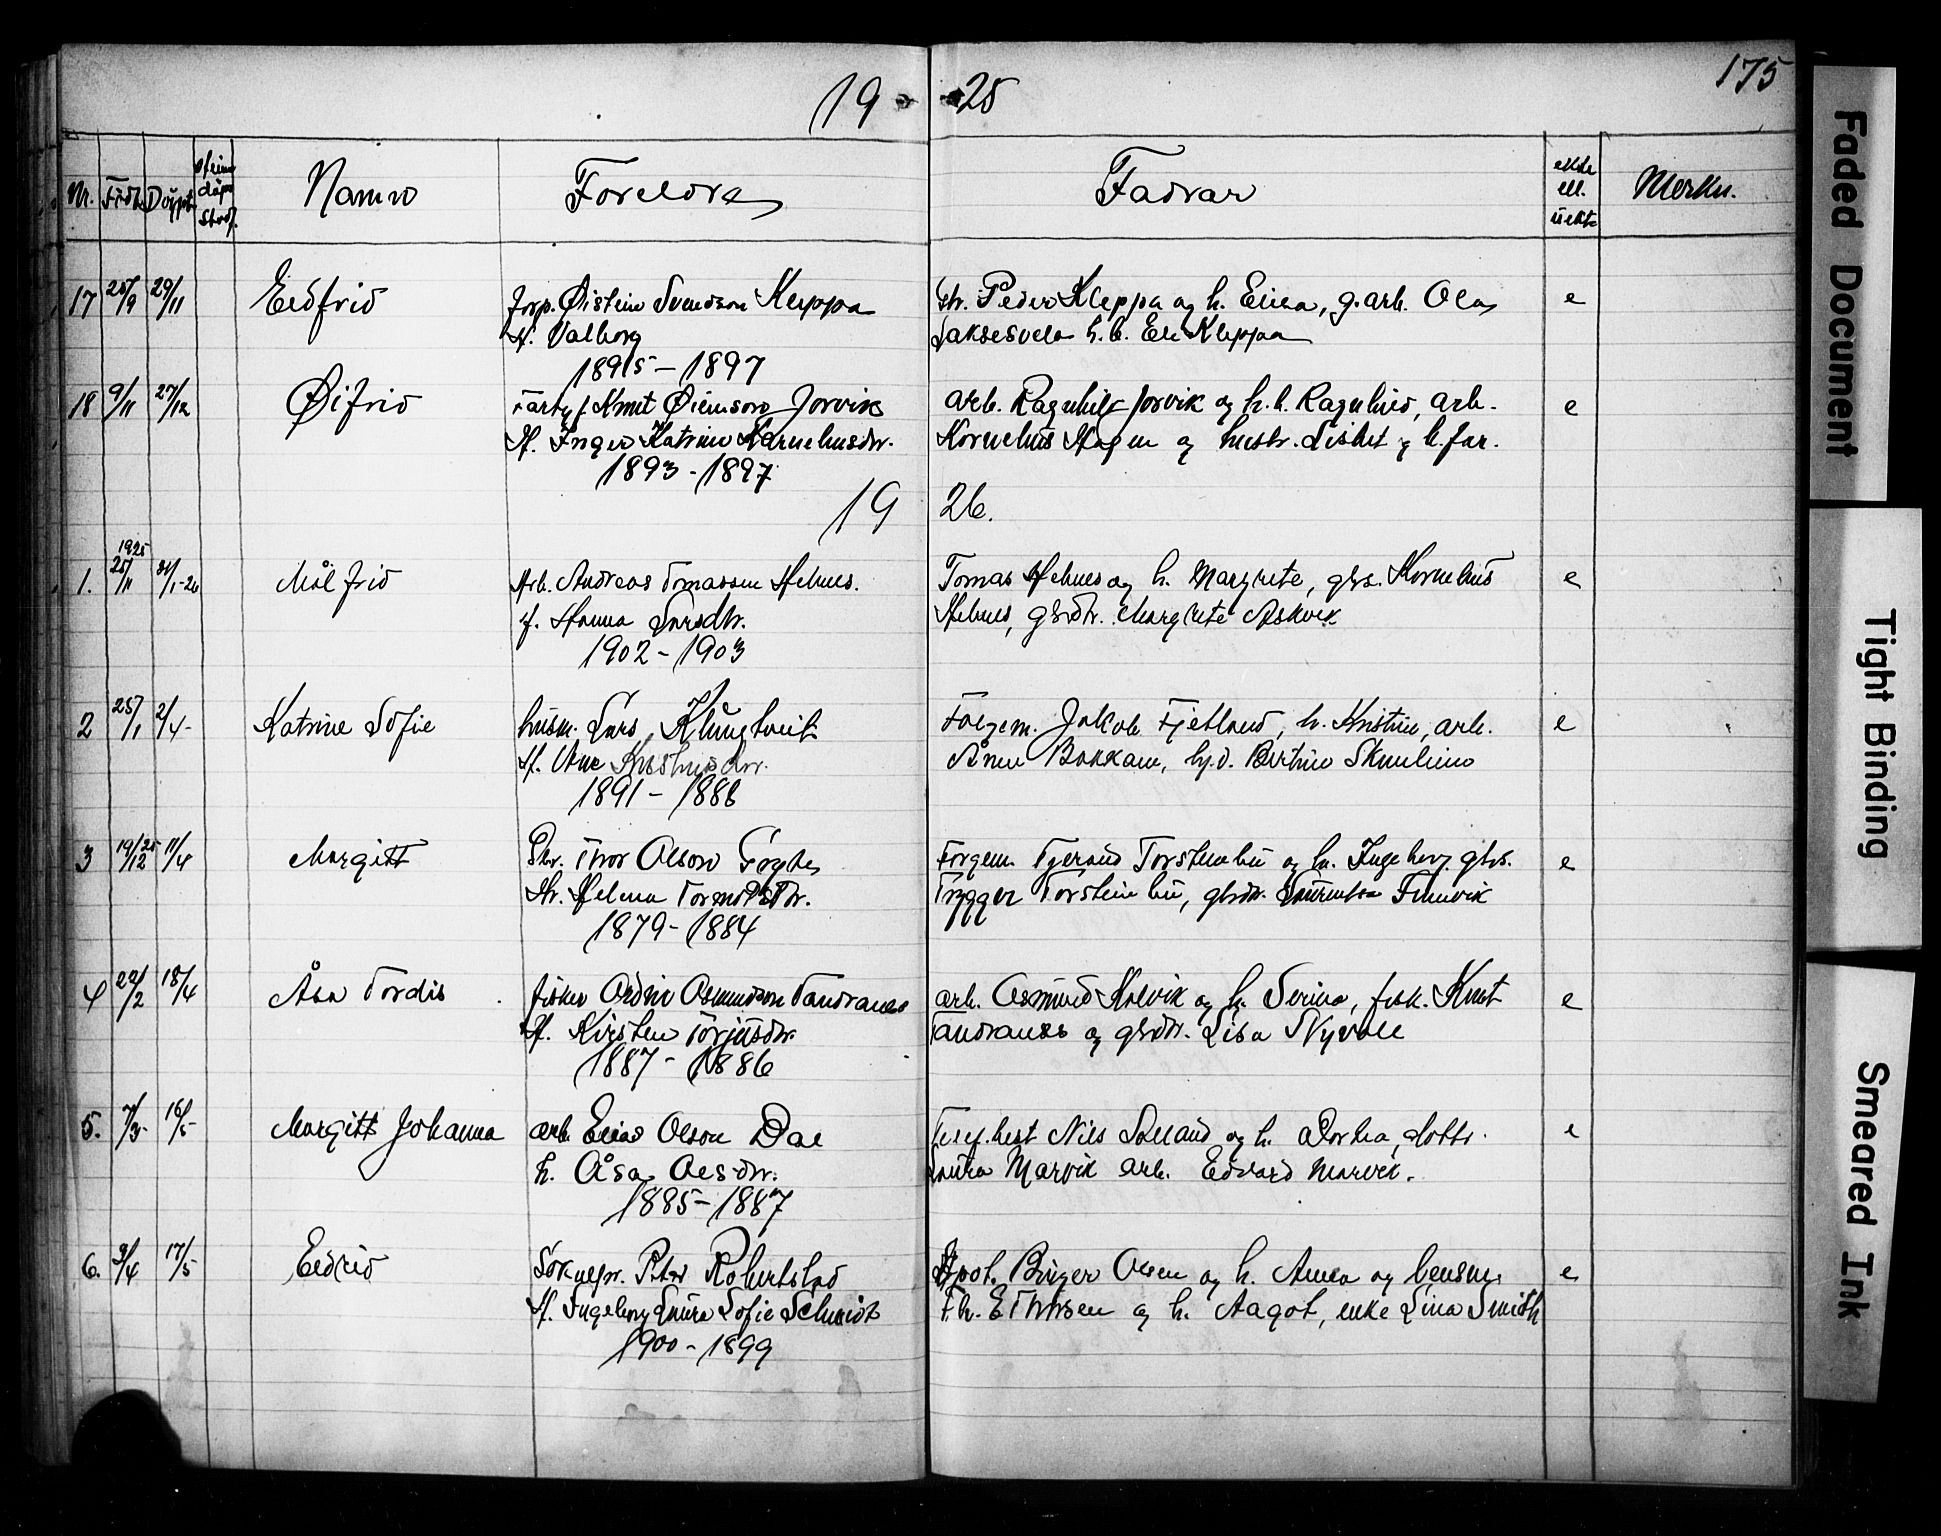 175
19 25
Nr. Födt Döypt heime döpt stad. Namn Foreldre Fadrar ekte ell. uekte Merkn.
17 25/9 29/11 Eldfrid forp. Øistein Svendson Kleppa
H. Valborg
1895 - 1897
str. Peder Kleppa og h. Elisa, g.arb. Ola
Laksesvela h.b. Eli Kleppa
e
18 9/11 27/12 Øifrid Fartyf. Knut Øiensson Jorvik
H. Inger Katrine Korneliusdtr.
1893 - 1897
arb. Ragnhild Jorvik og h.b. Ragnhild, arb.
Kornelius Hagen og hustr. Lisbet og b. far.
e
19 26.
1. 1925 25/11 31/1-26 Målfrid Arb. Andreas Tomassen Helnes.
H. Hanna Larsdtr.
1902 - 1903
Tomas Helnes og h. Margrete, gbs. Kornelius
Helnes, gbrdtr. Margrete Askvik
e
2 25/1 2/4- Katrine Sofie husm. Lars Klungtveit
H. Ane Kristensdtr.
1891 - 1888
Folgem. Jakob Fjetland, h. Kristine, arb.
Ånen Bakkam, hj.d. Bertine Skeuleim
e
3 19/12 25 11/4 Margitt Skr. Thor OlsonFørde
H. Helena Tormodsdtr.
1879 - 1884
Forgem. Tjerand Torsteinbu og h. Ingeborg, gbs.
Trygger Torsteinbu, gbrdtr. Laurentse Finnvik
e
4 22/2 18/4 Åsa Tordis fisker Oldin Osmundson Tandranes
H. Kirsten Torjusdtr.
1887 - 1886
arb. Osmund Kolvik og h. Serina, fisk. Knut
Tandranes og gbrdtr. Lisa Nyvoll
e
5. 7/3- 16/5- Margitt Johanna arb. Elias Olson Dal
h. Åsa Olsdtr.
1885 - 1887
Telef.best Nils Søland og h. Dortea, dottr.
Laura Marvik arb. Edvard Marvik.
e
6. 9/4 17/5 Eldrid Soknepr. Peter Robertstad
H. Ingeborg Laura Sofie Schmidt
1900 - 1899
Apot. Birger Olsen og h. Anna og lensm.
Th. E Thorsen og h. Aagot, enke Lina Smith
e
Faded Document
Tight Binding
Smeared Ink